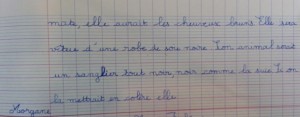 mats, elle aurait les cheveux bruns Elle sera
vêtue d'une robe de soie noire Ton animal serait
un sanglier tout noir, noir comme la suie Si on
la mettrait en colère elle
Morgane